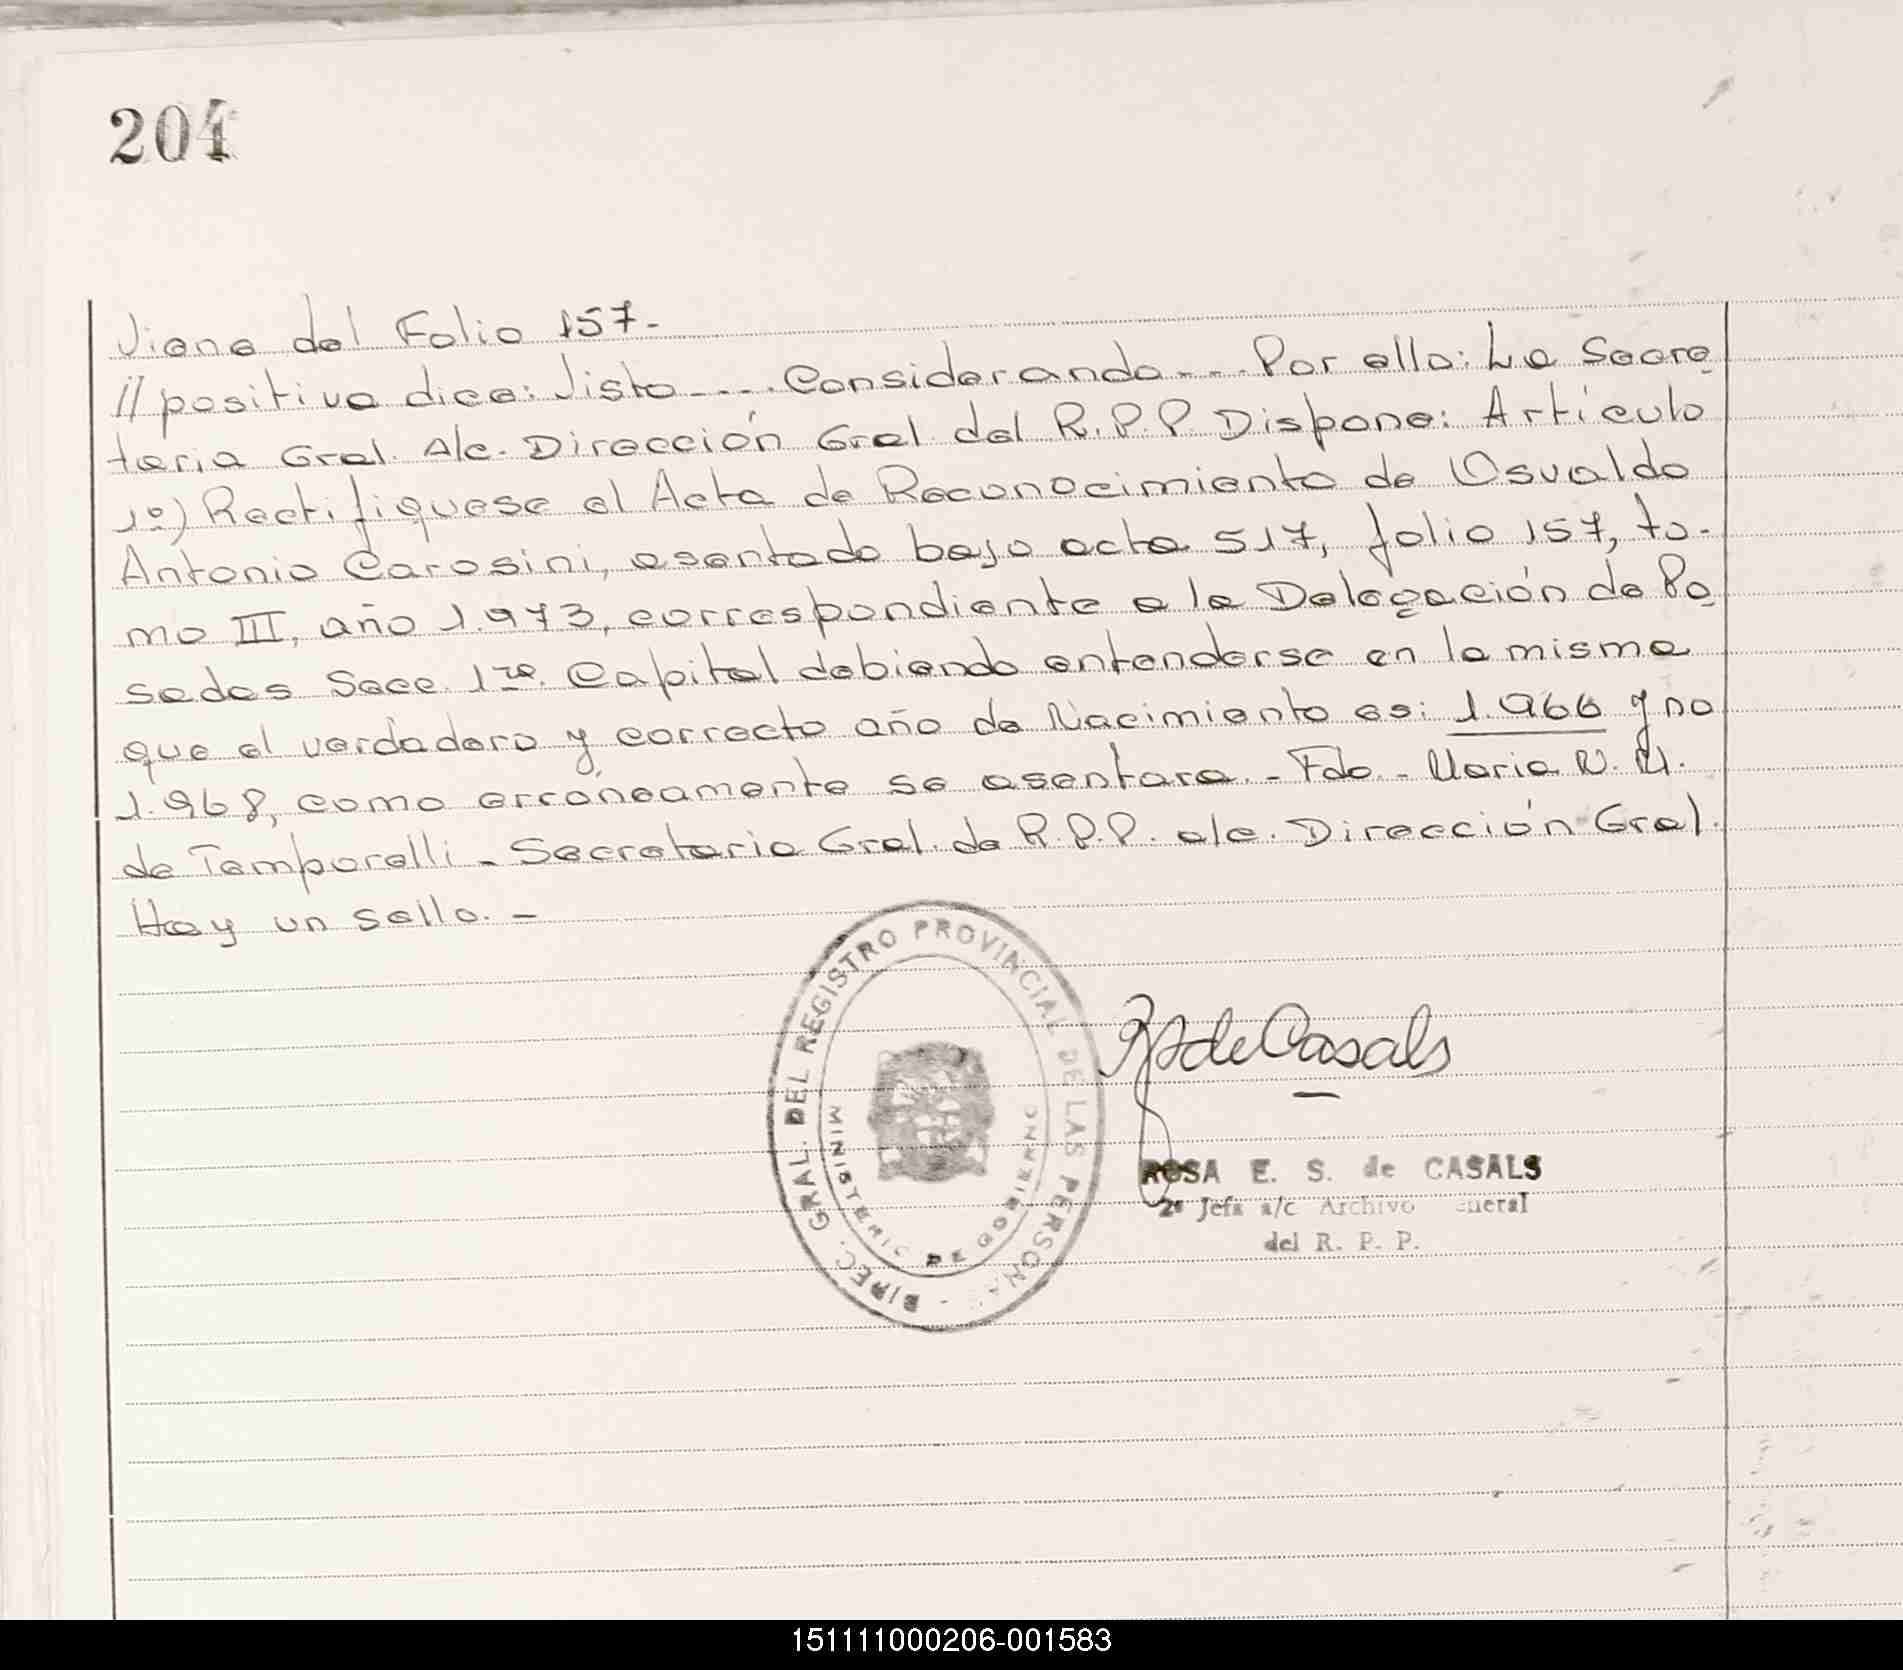 204
Viene del Folio 157.-
// positiva dice: Visto.... Considerando... Por ello: La Secre
taria Gral. A/c. Dirección Gral. del R.P.P. Dispone: Artículo
1º) Rectifiquese el Acta de Reconocimiento de Osvaldo
Antonio Carosini, asentado bajo acta 517, folio 157, to-
mo III, año 1.973, correspondiente a la Delegación de Po
sadas Secc. 1ra. Capital debiendo entenderse en la misma
que el verdadero y correcto año de Nacimiento es: 1.966 y no
1.968, como erróneamente se asentara.- Fdo.- Maria N. M.
de Temporelli - Secretaria Gral. de R.P.P. a/c. Dirección Gral.
Hay un sello. -
DIREC. GRAL. DEL REGISTRO PROVINCIAL DE LAS PERSONA
MINISTERIO DE GOBIERNO
de Casals
ROSA E. S. de CASALS
2º Jefa a/c Archivo eneral
del R. P. P.
151111000206-001583